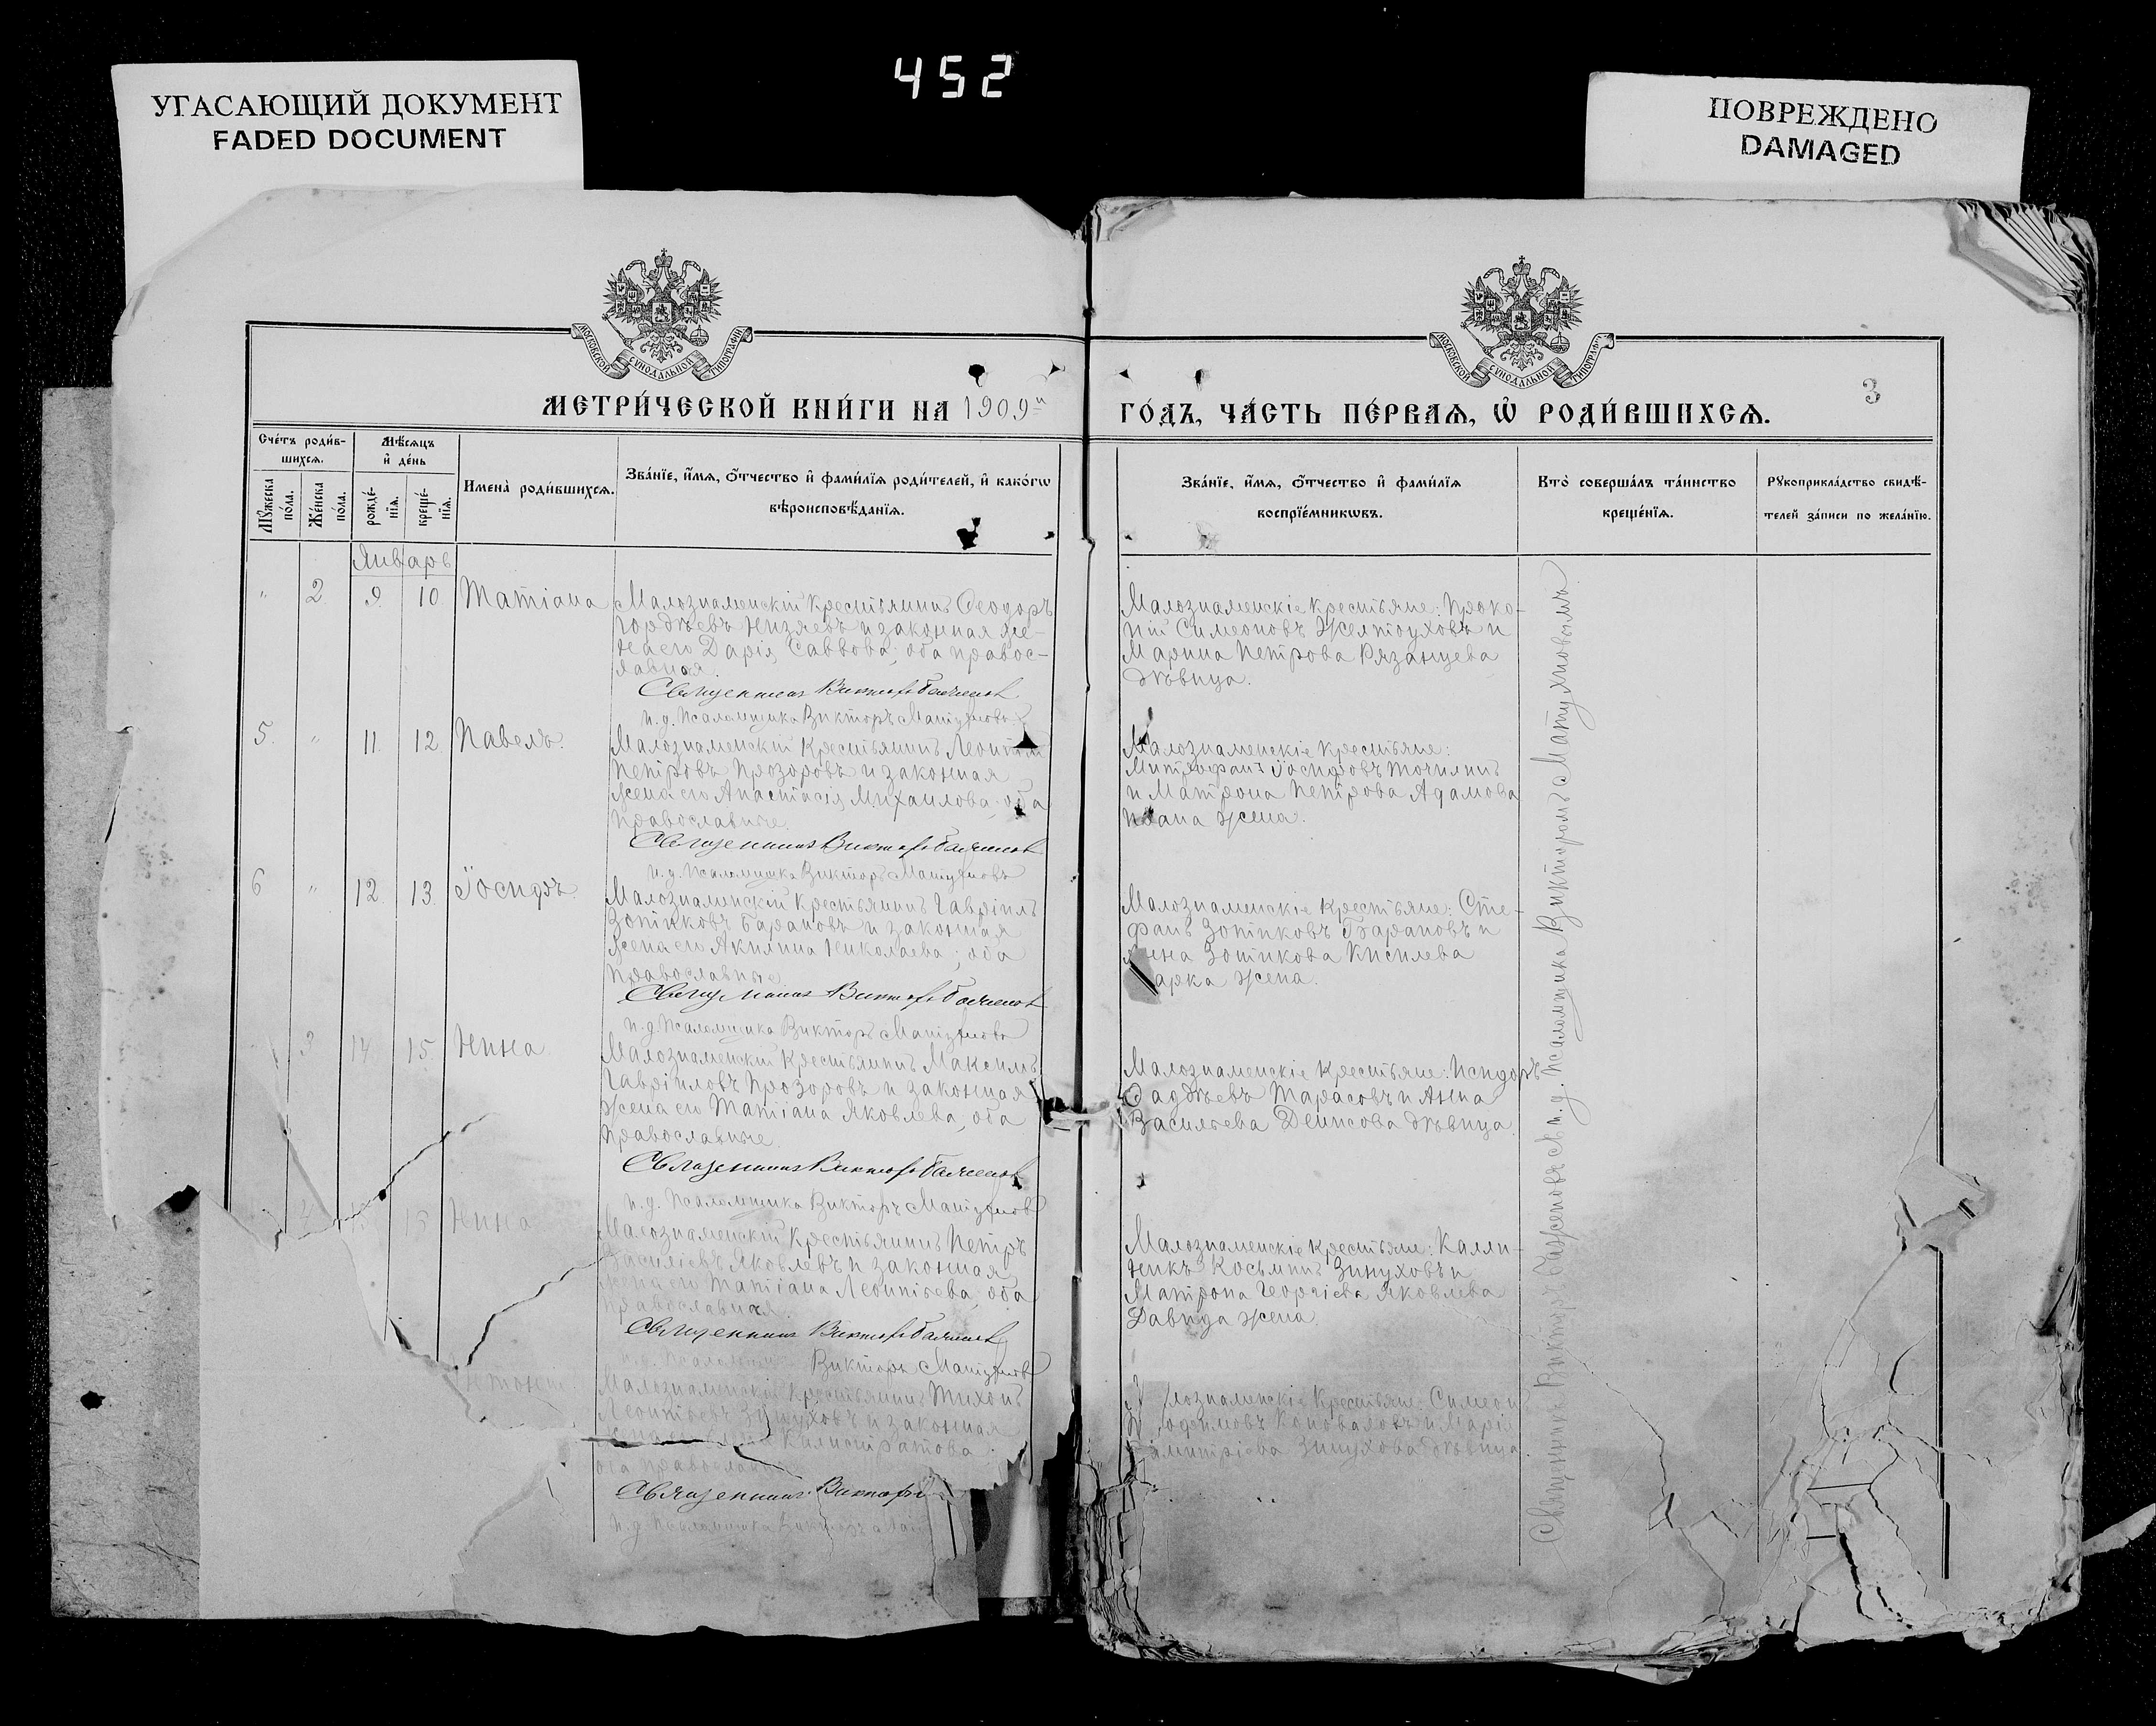 452
УГАСАЮЩИЙ ДОКУМЕНТ
FADED DOCUMENT
ПОВРЕЖДЕНО
DAMAGED
МОСКОВСКОЙ СѴНОДАЛЬНОЙ ТИПОГРАФІИ
МОСКОВСКОЙ СѴНОДАЛЬНОЙ ТИПОГРАФІИ
3
МЕТРИ́ЧЕСКОЙ КНИ́ГИ НА 1909й
ГО́ДЪ, ЧА́СТЬ ПЕ́РВАѦ, Ѡ҆ РОДИ́ВШИХСѦ.
Сче́тъ роди́в-
шихсѧ.
Мѣ́сѧцъ
и҆ де́нь
Мꙋ́жеска
по́ла.
Же́нска
по́ла.
рожде́-
нїѧ.
креще́-
нїѧ.
Имена̀ роди́вшихсѧ.
Зва́нїе, и҆́мѧ, ѻ҆́тчество и҆ фами́лїѧ роди́телей, и҆ како́гѡ
вѣроисповѣ́данїѧ.
Зва́нїе, и҆́мѧ, ѻ҆́тчество и҆ фами́лїѧ
воспрїе́мникѡвъ.
Кто̀ соверша́лъ та́инство
креще́нїѧ.
Рꙋкоприкла́дство свидѣ́-
телей за́писи по жела́нїю.
Январь
" 2 9 10 Татіана
Малознаменскій крестьянинъ Ѳеодоръ
Гордѣевъ Низяевъ и законная же-
на его Дарія Саввова; оба правос-
лавная.
Священникъ Викторъ
и.д. Псаломщика Викторъ Матухновъ
Малознаменскіе крестьяне: Проко-
пій Симеоновъ Желтоуховъ и
Марина Петрова Рязанцева
дѣвица.
5. " 11. 12 Павелъ.
Малознаменскій крестьянинъ Леонтій
Петровъ Прозоровъ и законная
жена его Анастасія Михаилова; оба
православные.
Священникъ Викторъ
и.д. Псаломщика Викторъ Матухновъ
Малознаменскіе крестьяне:
Митрофанъ Іосифовъ Точилинъ
и Матрона Петрова Адамова
жена.
6 " 12. 13. Іосифъ.
Малознаменскій крестьянинъ Гавріилъ
Зотиковъ Барановъ и законная
жена его Акилина Николаева; оба
православные.
Священникъ Викторъ
и.д. Псаломщика Викторъ Матухновъ
Малознаменскіе крестьяне: Сте-
фанъ Зотиковъ Барановъ и
Зотикова Кисилева
жена.
3 14 15 Нина
Малознаменскій крестьянинъ Максимъ
Гавріиловъ Прозоровъ и законная
жена его Татіана Яковлева, оба
православные.
Священникъ Викторъ
и.д. Псаломщика Викторъ Матухновъ
Малознаменскіе крестьяне: Исидоръ
Ѳаддѣевъ Тарасовъ и Анна
Васильева Денисова дѣвица.
Нина
Малознаменскій крестьянинъ Петръ
Василіевъ Яковлевъ и законная
жена его Татіана Леонтьева, оба
православная.
Священникъ Викторъ
Викторъ Матухновъ
Малознаменскіе крестьяне: Калли-
никъ Косьминъ Зинуховъ и
Матрона Георгіева Яковлева
Давида жена.
Малознаменскій крестьянинъ Тихонъ
Леонтьевъ Зинуховъ и законная
Калистратова
оба православные
Священникъ Викторъ
и.д. Псаломщика Викторъ
крестьяне: Симеонъ
Коноваловъ и Марія
Зинухова дѣвица.
Священникъ Викторъ съ и.д. Псаломщика Викторомъ Матухновымъ